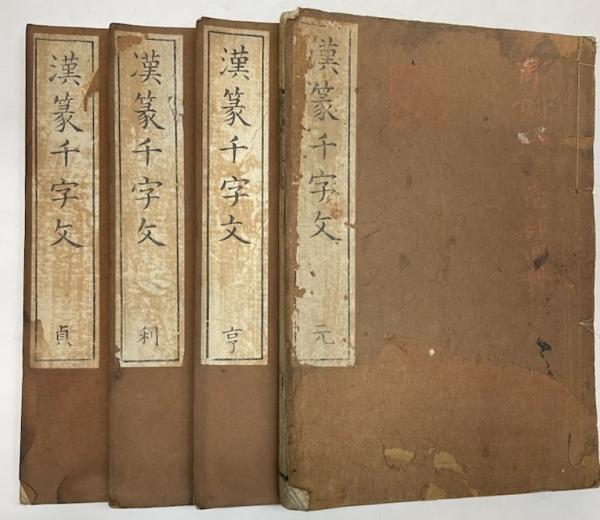 漢篆千字文
元
漢篆千字文
亨
漢篆千字文
利
漢篆千字文
貞